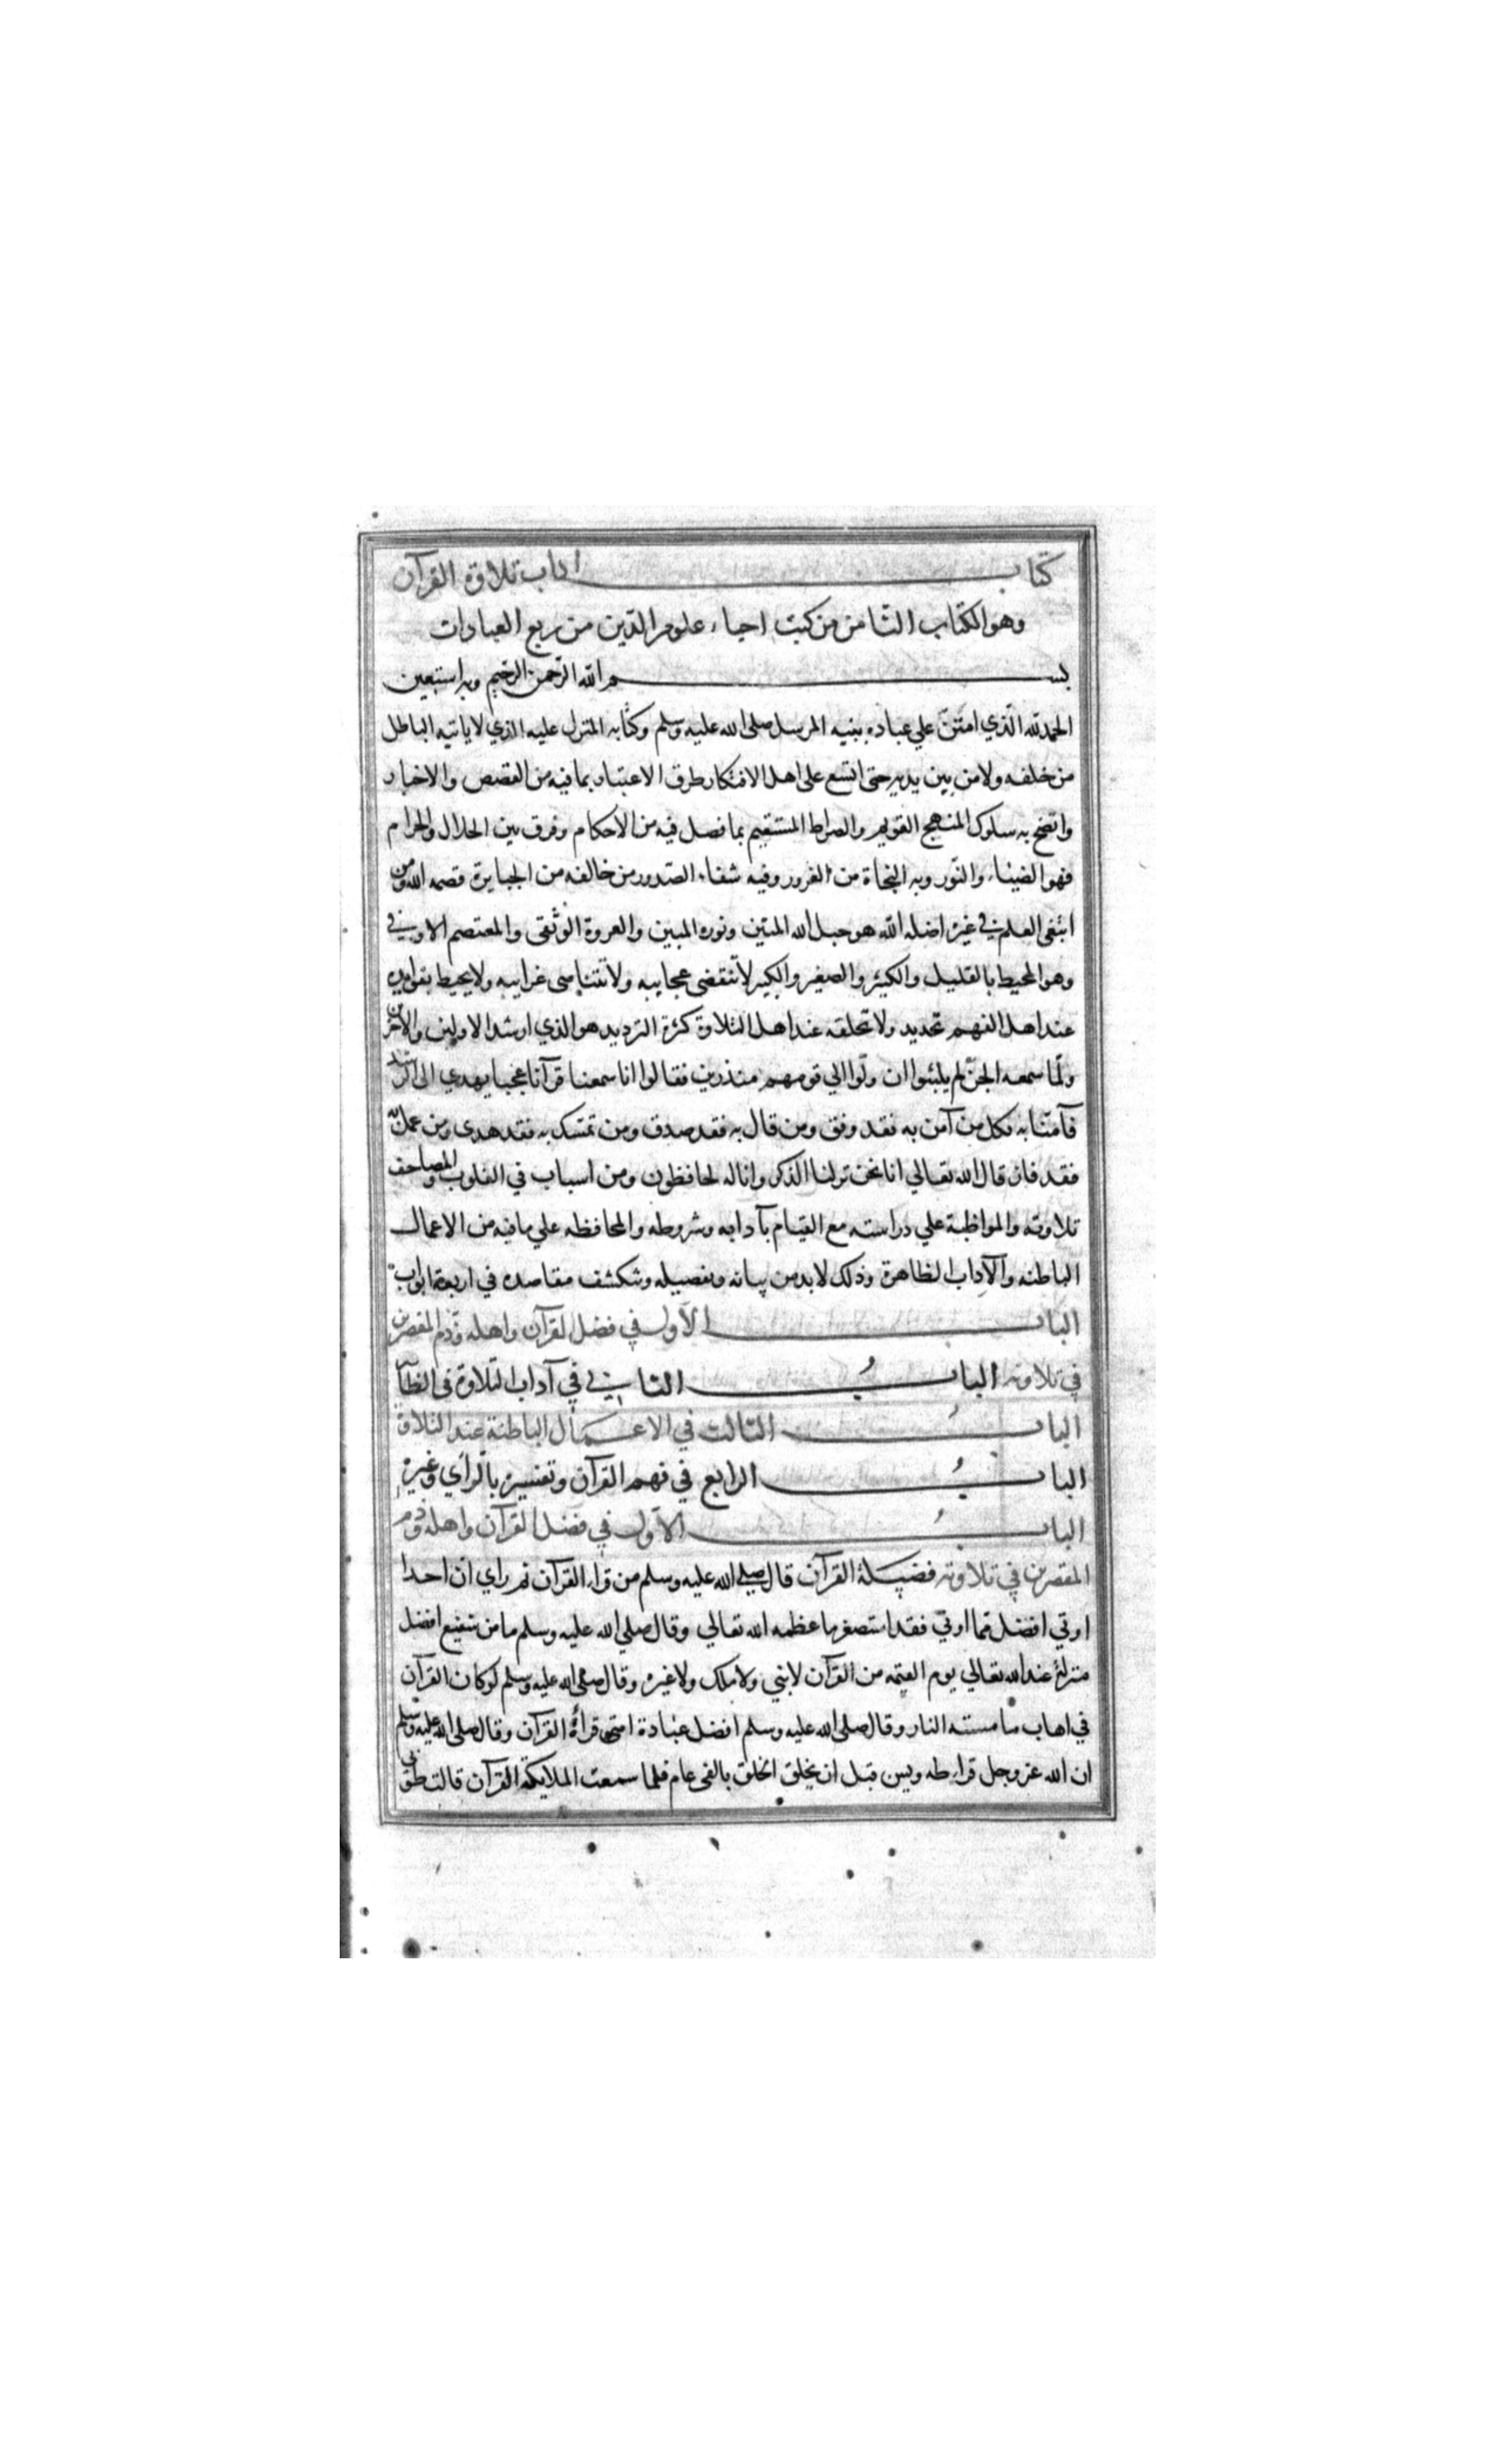 كتاب اداب تلاوة القرآن
وهو الكتاب الثامن من كتب احياء علوم الدين من ربع العبادات
بسم الله الرحمن الرحيم وبه استعين
الحمد لله الذي امتن علي عباده بنبيه المرسل صلى الله عليه وسلم وكتابه المنزل عليه الذي لا ياتيه الباطل
من خلفه ولا من بين يديه حتى اتسع على اهل الافتكار طرق الاعتبار بما فيه من القصص والاخبار
واتضح به سلوك المنهج القويم والصراط المستقيم بما فصل فيه من الاحكام وفرق بين الحلال والحرام
فهو الضياء والنور وبه النجاة من الغرور وفيه شفاء الصدور من خالفه من الجبابرة قصمه الله ومن
ابتغى العلم في غيره اضله الله هو حبل الله المتين ونوره المبين والعروة الوثقى والمعتصم الاوفي
وهو المحيط بالقليل والكثير والصغير والكبير لا تنقضى عجايبه ولا تتناهى غرايبه ولا يحيط بفوايده
عند اهل الفهم تحديد ولا تخلقه عند اهل التلاوة كثرة الترديد هو الذي ارشد الاولين والآخرين
ولما سمعه الجن لم يلبثوا ان ولوا الي قومهم منذرين فقالوا انا سمعنا قرآنا عجبا يهدي الى الرشد
فآمنا به فكل من آمن به فقد وفق ومن قال به فقد صدق ومن تمسك به فقد هدى ومن عمل به
فقد فاز قال الله تعالي انا نحن نزلنا الذكر وانا له لحافظون ومن اسباب في القلوب والمصاحف
تلاوته والمواظبة علي دراسته مع القيام بآدابه وشروطه والمحافظه علي ما فيه من الاعمال
الباطنه والآداب الظاهرة وذلك لا بد من بيانه وتفصيله وتنكشف مقاصده في اربعة ابواب
الباب الاول في فضل القرآن واهله وذم المقصرين
في تلاوته الباب الثاني في آداب التلاوة في الظا
الباب الثالث في الاعمال الباطنة عند التلاوة
الباب الرابع في فهم القرآن وتفسيره بالرأي وغيره
الباب الاول في فضل القرآن واهله وذم
المقصرين في تلاوته فضيلة القرآن قال صلى الله عليه وسلم من قراء القرآن ثم راي ان احدا
اوتي افضل مما اوتي فقد استصغر ما عظمه الله تعالي وقال صلي الله عليه وسلم ما من شفيع افضل
منزلة عند الله تعالي يوم القيمه من القرآن لا نبي ولا ملك ولا غيره وقال صلى الله عليه وسلم لو كان القرآن
في اهاب ما مسته النار وقال صلى الله عليه وسلم افضل عبادة امتى قرأة القرآن وقال صلى الله عليه وسلم
ان الله عز وجل قراء طه ويس قبل ان يخلق الخلق بالفى عام فلما سمعت الملايكة القرآن قالت طوبى